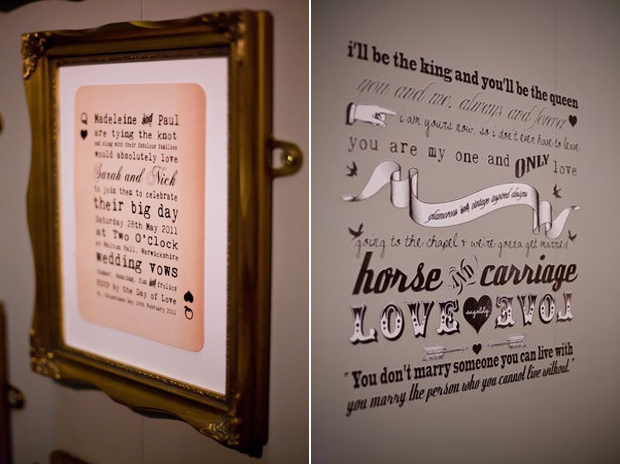 Q
Madeleine and Paul
are tying the knot
and along with their fabulous families
would absolutely love
Sarah and Nick
to join them to celebrate
their big day
Saturday 28th May 2011
at Two O'Clock
at Walton Hall, Warwickshire
Wedding vows
dinner, dancing, fun and frolics
RSVP by the Day of Love
St. Valentines Day 14th February 2011
Q
i'll be the king and you'll be the queen
you and me, always and forever
i am yours now, so i don't ever have to leave
you are my one and ONLY love
glamorous with vintage inspired designs
going to the chapel & we're gonna get married
horse and carriage
LOVE LOVE
"You don't marry someone you can live with
you marry the person who you cannot live without."